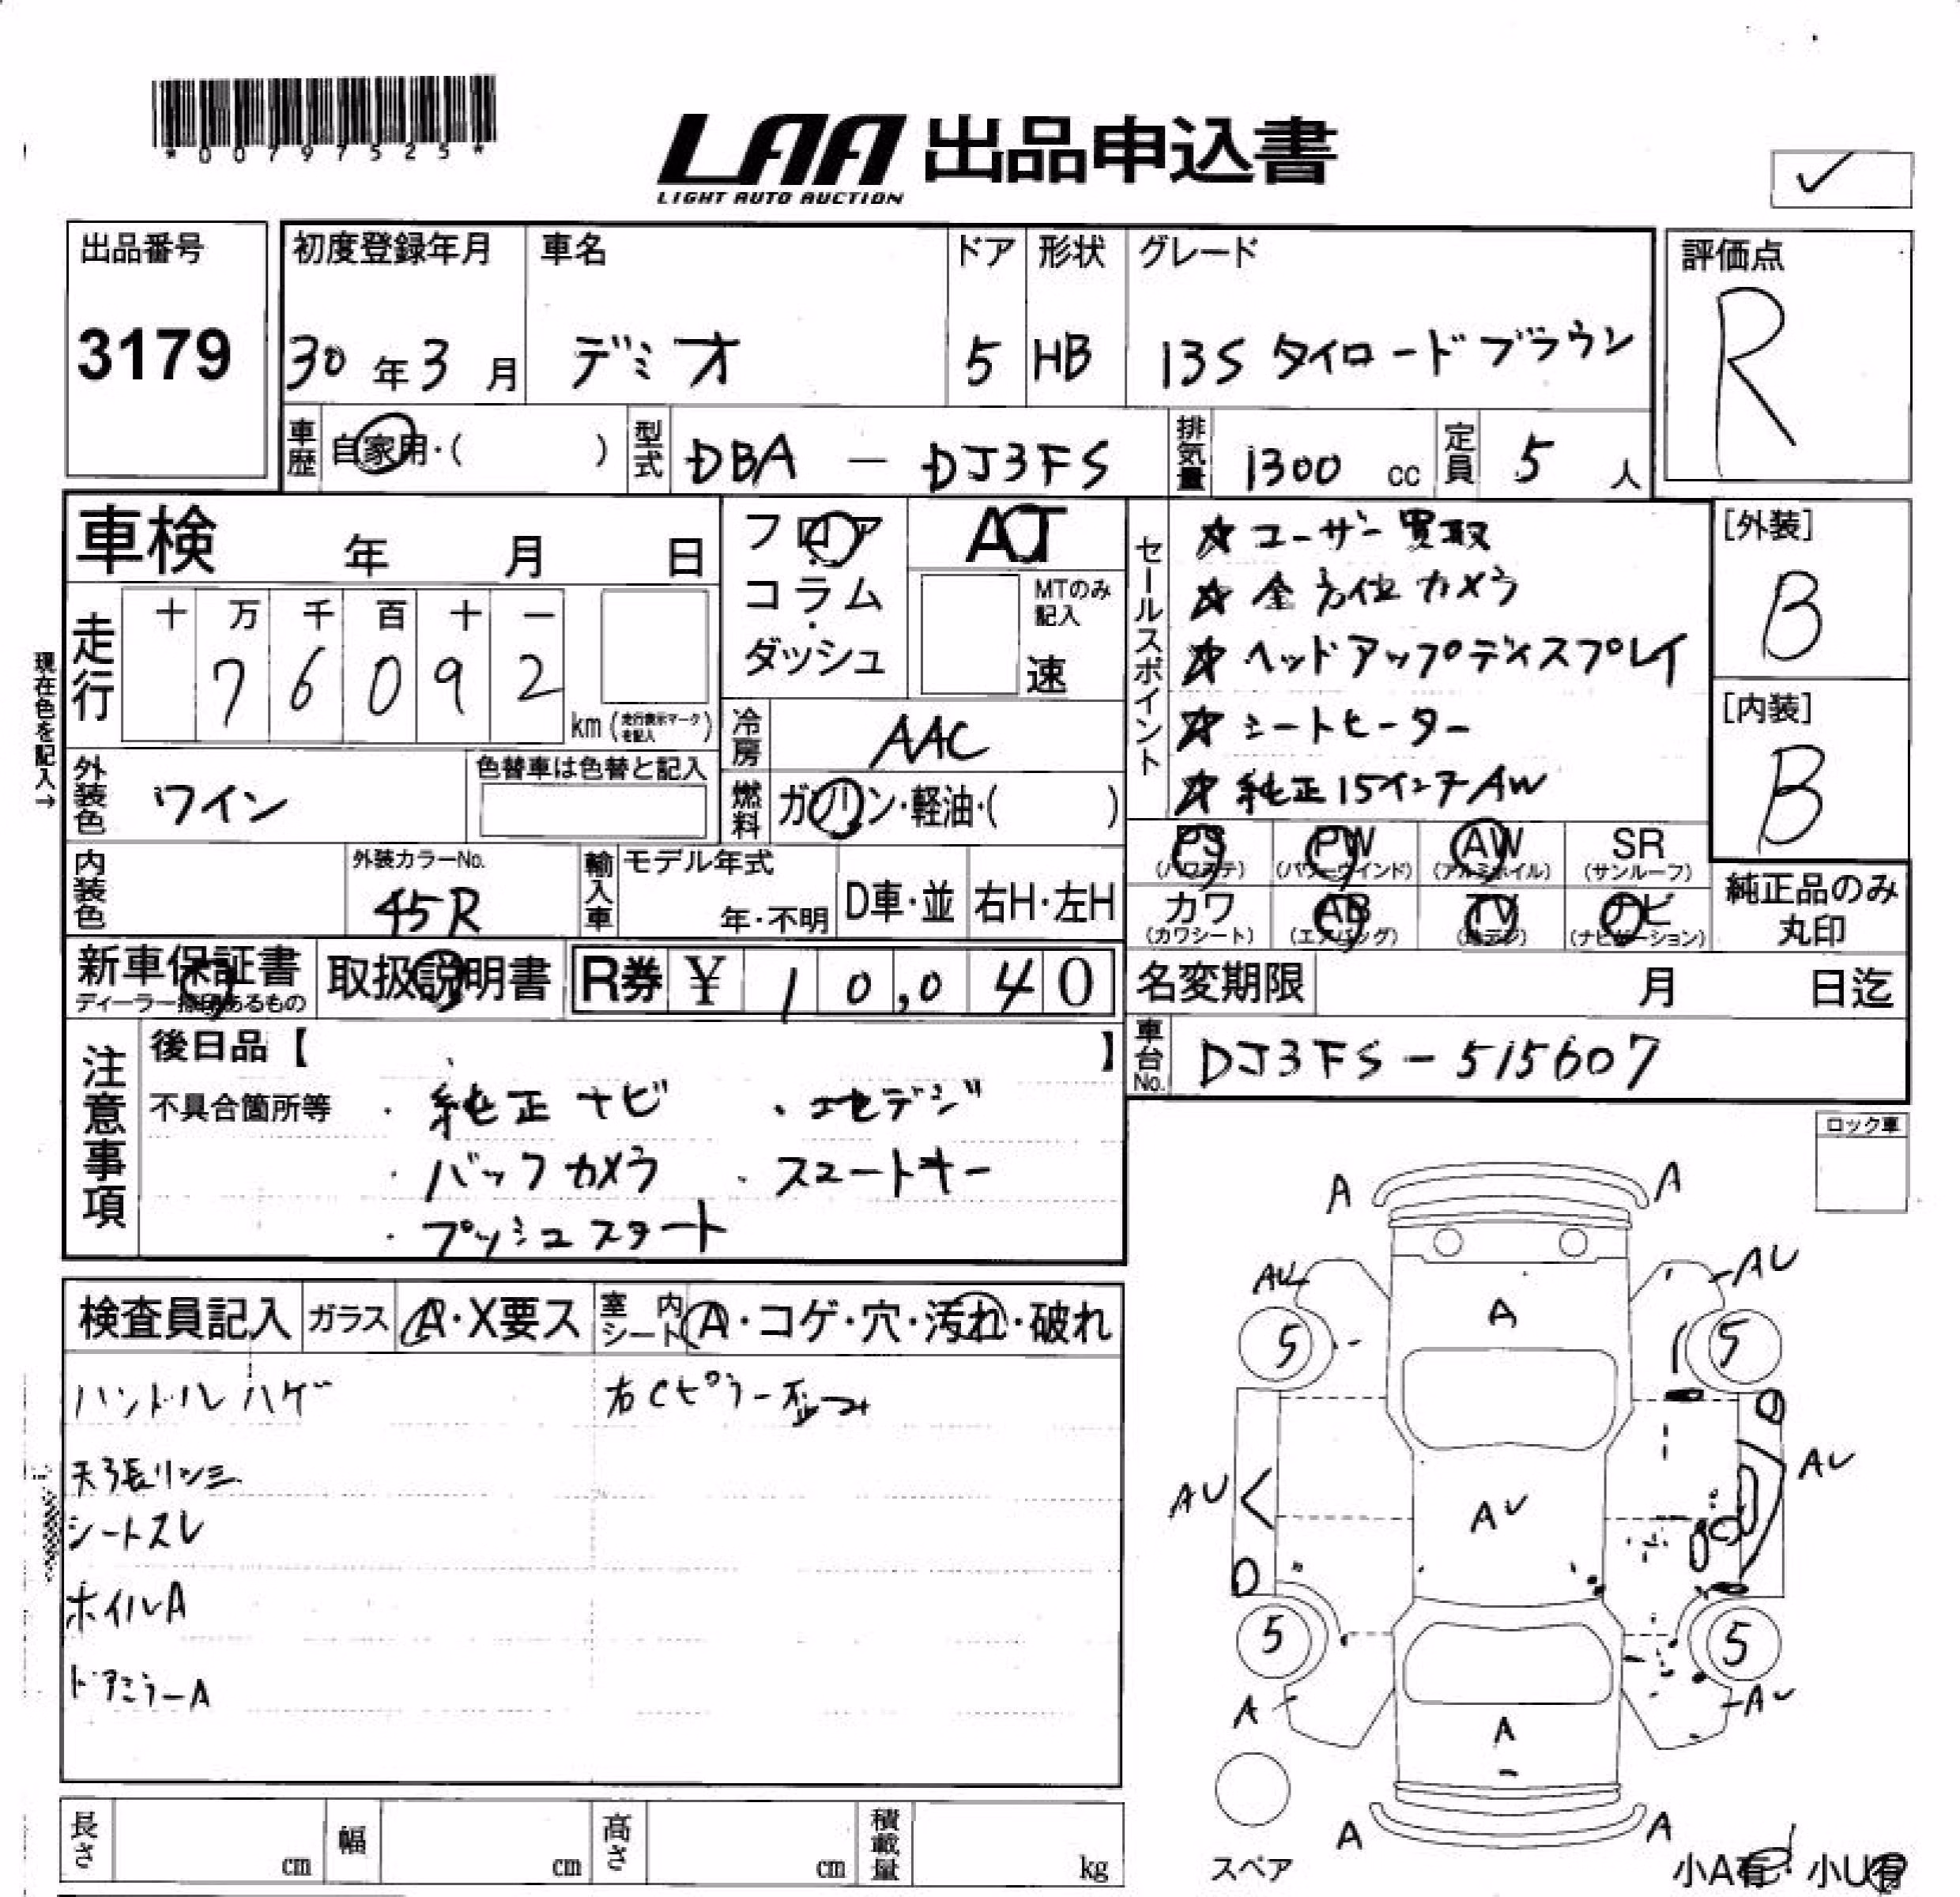 *00797525*
LAA 出品申込書
LIGHT AUTO AUCTION
出品番号
3179
初度登録年月
30年3月
車名
デミオ
ドア
5
形状
HB
グレード
13S タイロードブラウン
評価点
R
車歴 自家用・( )
型式 DBA - DJ3FS
排気量 1300 cc
定員 5 人
車検 年 月 日
フロア・コラム・ダッシュ
AT
MTのみ記入
速
現在色を記入→
走行
十 万 千 百 十 一
7 6 0 9 2
km (走行表示マークを記入)
冷房 AAC
燃料 ガソリン・軽油・( )
外装色 ワイン
色替車は色替と記入
内装色
外装カラーNo.
45R
輸入車 モデル年式
年・不明
D車・並 右H・左H
セールスポイント
☆ ユーザー買取
☆ 全方位カメラ
☆ ヘッドアップディスプレイ
☆ シートヒーター
☆ 純正15インチAW
[外装]
B
[内装]
B
PS (パワステ) PW (パワーウインド) AW (アルミホイル) SR (サンルーフ)
カワ (カワシート) AB (エアバッグ) TV (地デジ) ナビ (ナビゲーション)
純正品のみ丸印
新車保証書
ディーラー捺印あるもの
取扱説明書
R券 ¥ 10,040
名変期限 月 日迄
車台No. DJ3FS-515607
注意事項
後日品【 】
不具合箇所等
・純正ナビ ・フルセグ
・バックカメラ ・スマートキー
・プッシュスタート
ロック車
検査員記入 ガラス A・X要ス 室内シート A・コゲ・穴・汚れ・破れ
ハンドルハゲ
右Cピラー歪み
天張リシミ
シートスレ
ホイルA
ドアミラーA
A A
AU AU
A
5 5
AU AU AU
5 5
A AU
A
A A
スペア
小A有・小U有
長さ cm 幅 cm 高さ cm 積載量 kg